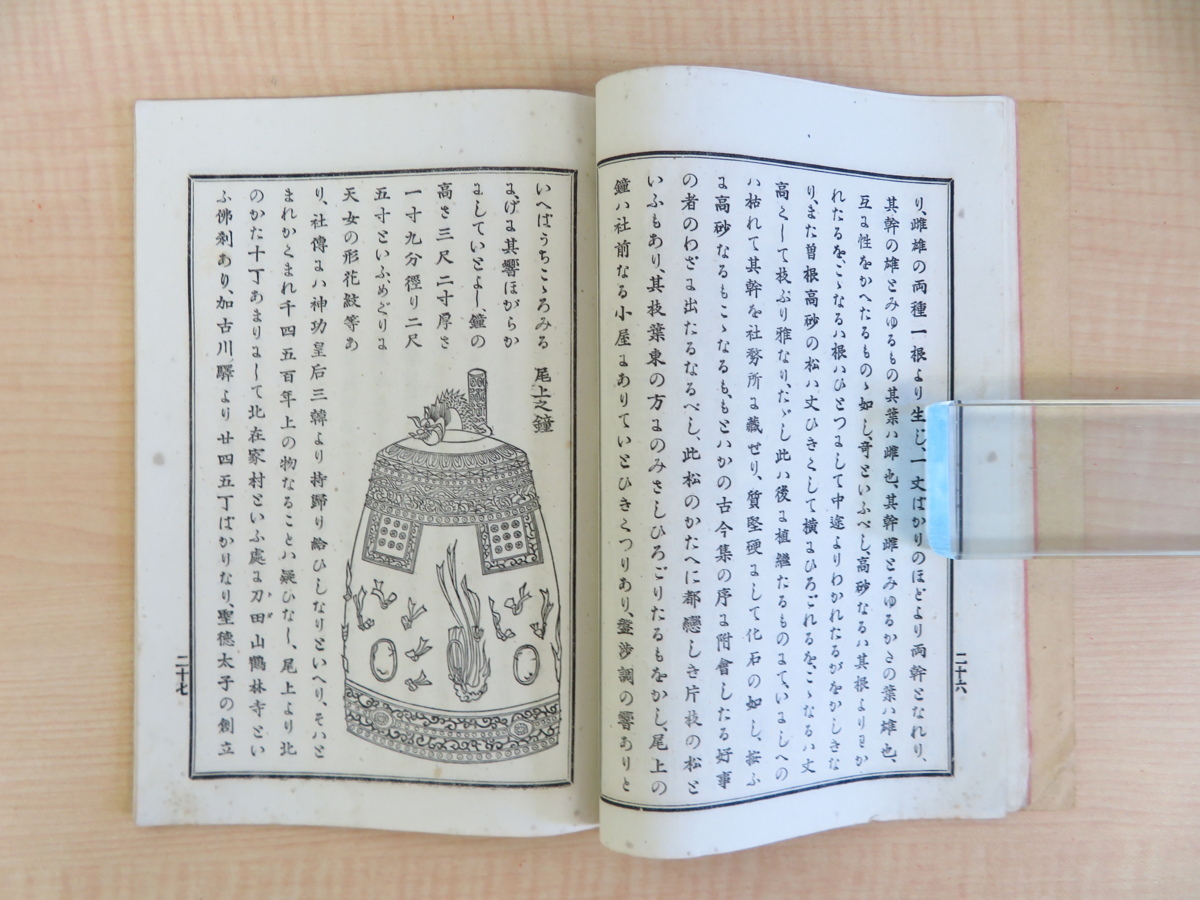 り、雌雄の両種一根より生じ、一丈ばかりのほどより両幹となれり、
其幹の雄とみゆるもの其葉ハ雌也、其幹雌とみゆるかさの葉ハ雄也、
互に性をかへたるものゝ如し、奇といふべし、高砂なるハ其根よりわか
れたるを、こゝなるハ根ハひとつにして中途よりわかれたるがをかしきな
り、また曽根高砂の松ハ丈ひきくして横にひろごれるを、こゝなるハ丈
高くして枝ぶり雅なり、たゞし此ハ後に植継たるものにて、いにしへの
ハ枯れて其幹を社務所に蔵せり、質堅硬にして化石の如し、按ふ
に高砂なるもこゝなるも、もとハかの古今集の序に附會したる好事
の者のわざに出たるなるべし、此松のかたへに都戀しき片枝の松と
いふもあり、其枝葉東の方にのみさしひろごりたるもをかし、尾上の
鐘ハ社前なる小屋にありていとひきくつりあり、盤渉調の響ありと
二十六
いへばうちこゝろみる
にげに其響ほがらか
にしていとよし、鐘の
高さ三尺二寸厚さ
一寸九分徑り二尺
五寸といふめぐりに
天女の形花紋等あ
り、社傳にハ神功皇后三韓より持歸り給ひしなりといへり、そハと
まれかくまれ千四五百年上の物なることハ疑ひなし、尾上より北
のかた十丁あまりにして北在家村といふ處に刀田山鶴林寺とい
ふ佛刹あり、加古川驛より廿四五丁ばかりなり、聖徳太子の創立
尾上之鐘
二十七